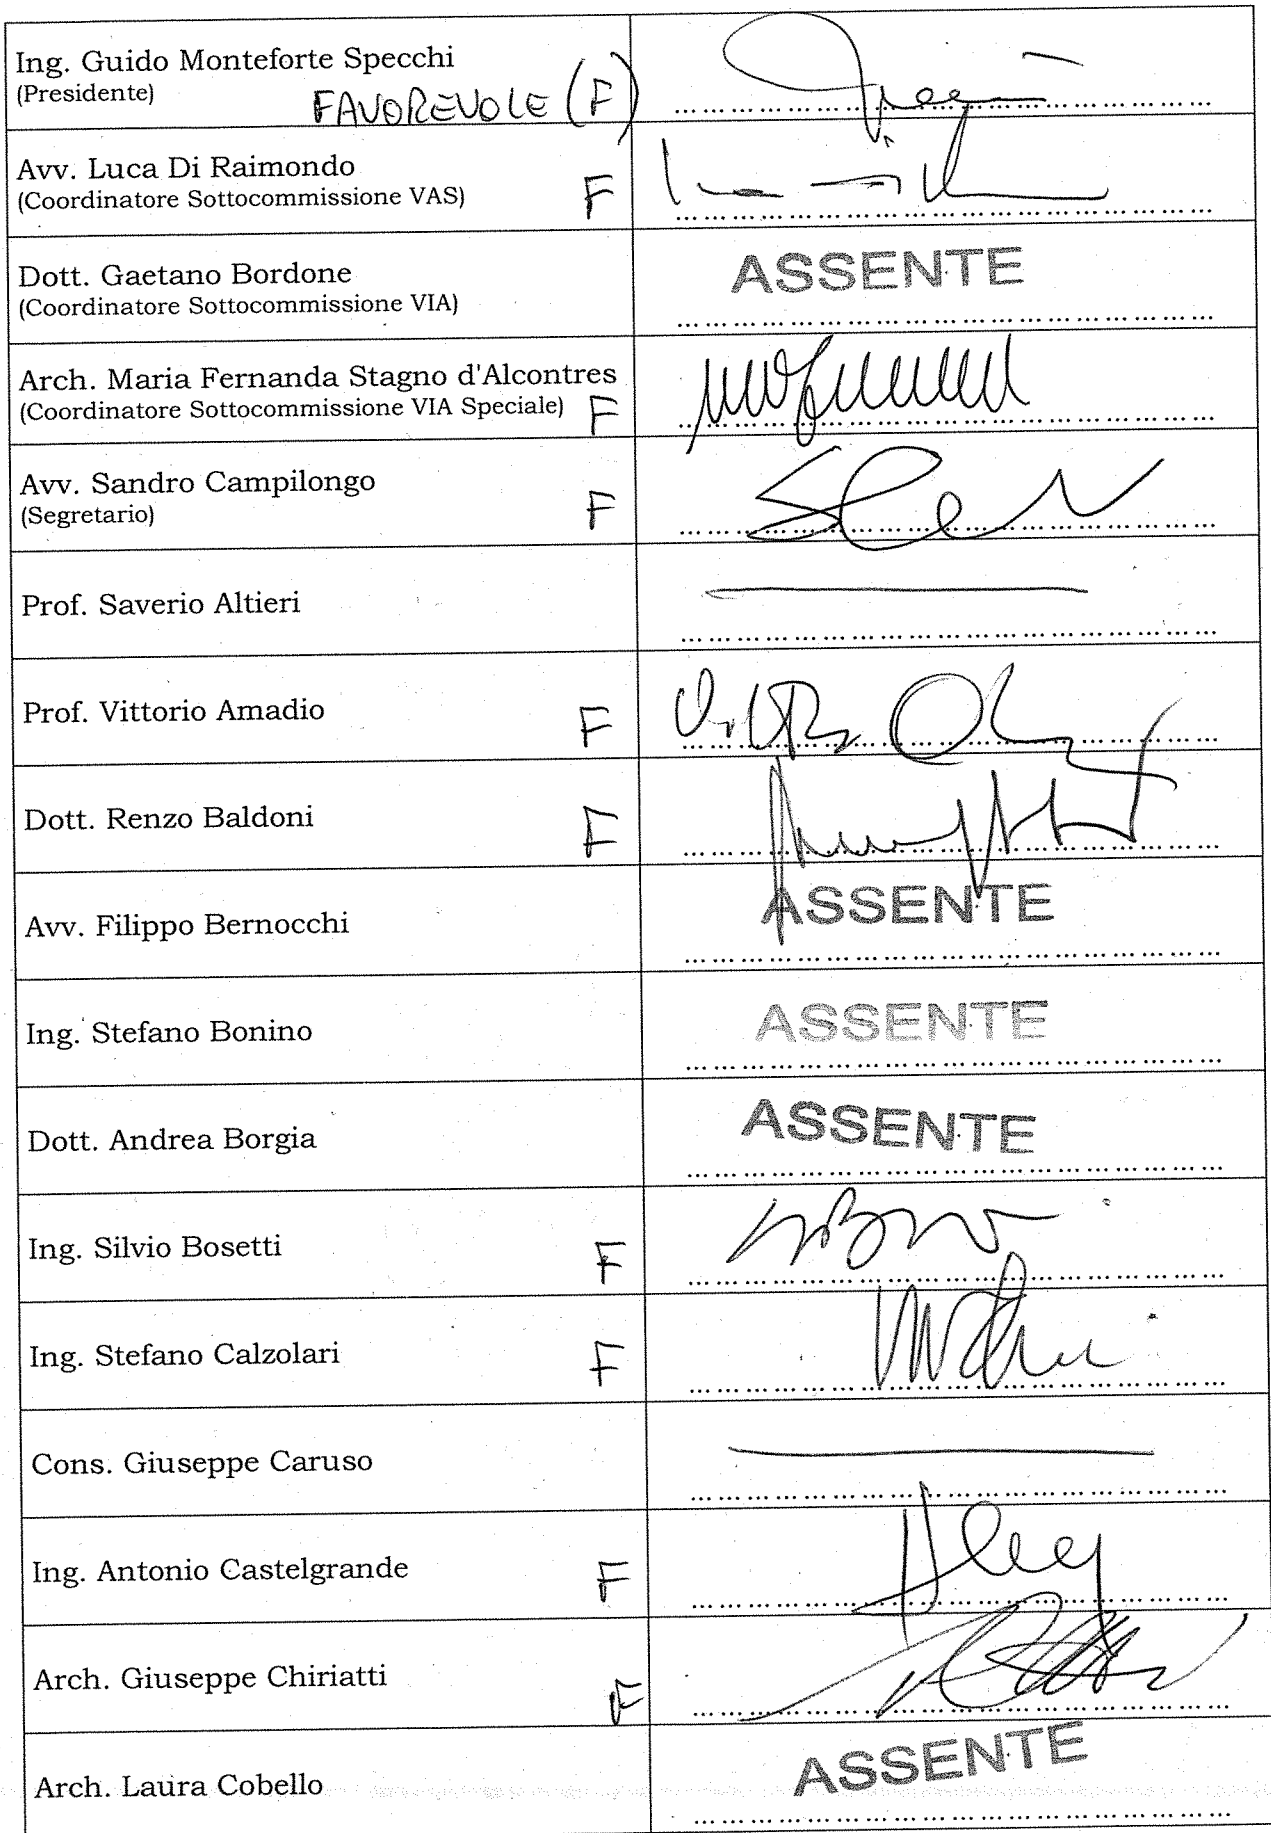 Ing. Guido Monteforte Specchi
(Presidente)
FAVOREVOLE (F)
Avv. Luca Di Raimondo
(Coordinatore Sottocommissione VAS)
F
Dott. Gaetano Bordone
(Coordinatore Sottocommissione VIA)
ASSENTE
Arch. Maria Fernanda Stagno d'Alcontres
(Coordinatore Sottocommissione VIA Speciale)
F
Avv. Sandro Campilongo
(Segretario)
F
Prof. Saverio Altieri
Prof. Vittorio Amadio
F
Dott. Renzo Baldoni
F
Avv. Filippo Bernocchi
ASSENTE
Ing. Stefano Bonino
ASSENTE
Dott. Andrea Borgia
ASSENTE
Ing. Silvio Bosetti
F
Ing. Stefano Calzolari
F
Cons. Giuseppe Caruso
Ing. Antonio Castelgrande
F
Arch. Giuseppe Chiriatti
F
Arch. Laura Cobello
ASSENTE